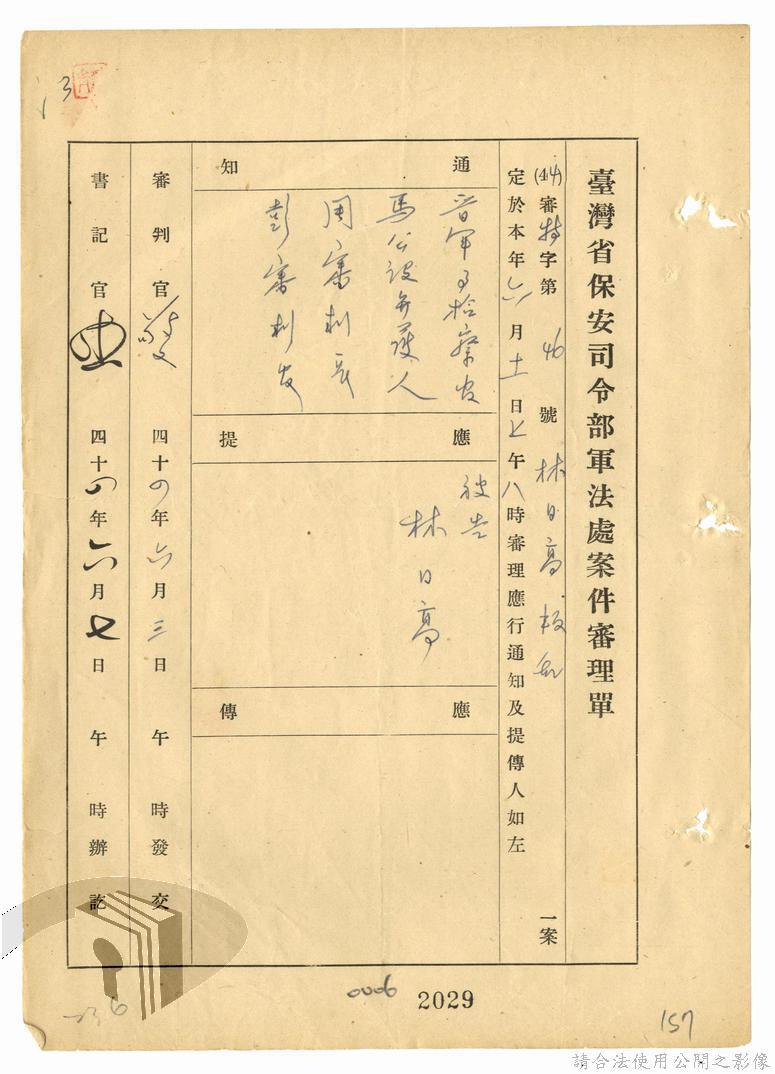 臺灣省保安司令部軍法處案件審理單
(44)審特字第46號林日高叛亂一案
定於本年六月十一日上午八時審理應行通知及提傳人如左
通知
軍事檢察官
馬公設辯護人
周審判長
彭審判官
應提
被告
林日高
應傳
審判官 四十四年六月三日午時發交
書記官 四十四年六月七日午時辦訖
0006
2029
157
請合法使用公開之影像